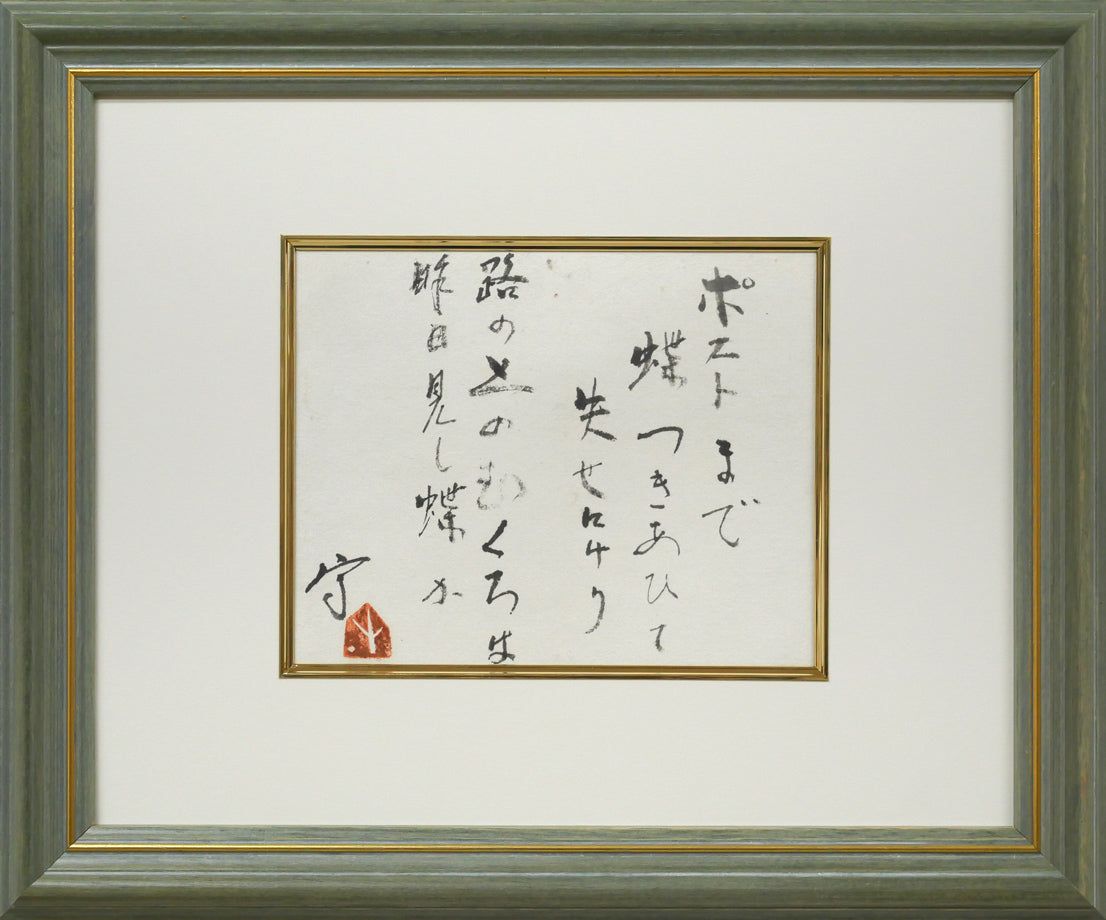 ポストまで
蝶つきあひて
失せにけり
路の上のむくろは
昨日見し蝶か
守